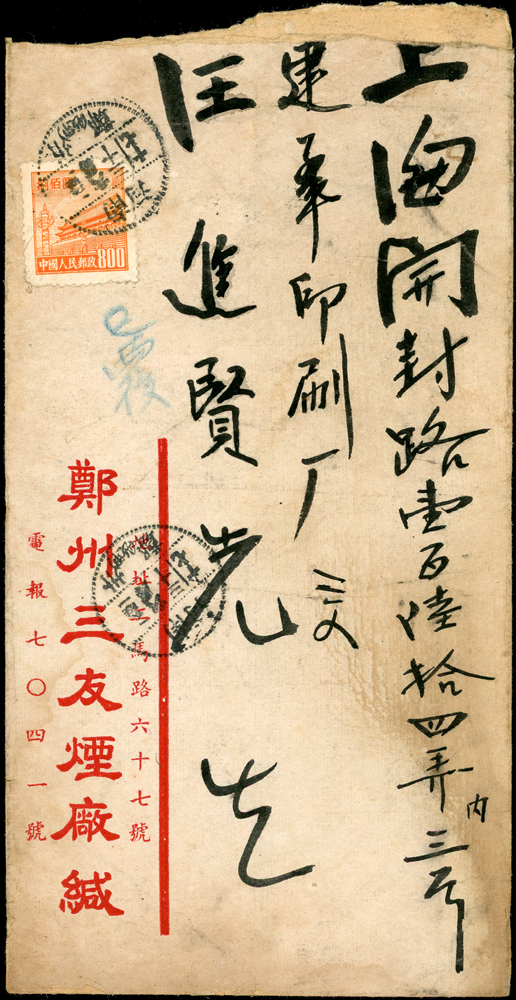 上海開封路壹百陸拾四弄內三号
建華印刷厂交
汪進賢先生
捌佰圓
中國人民郵政800
已覆
地址二馬路六十七號
鄭州三友煙廠緘
電報七〇四一號
河南